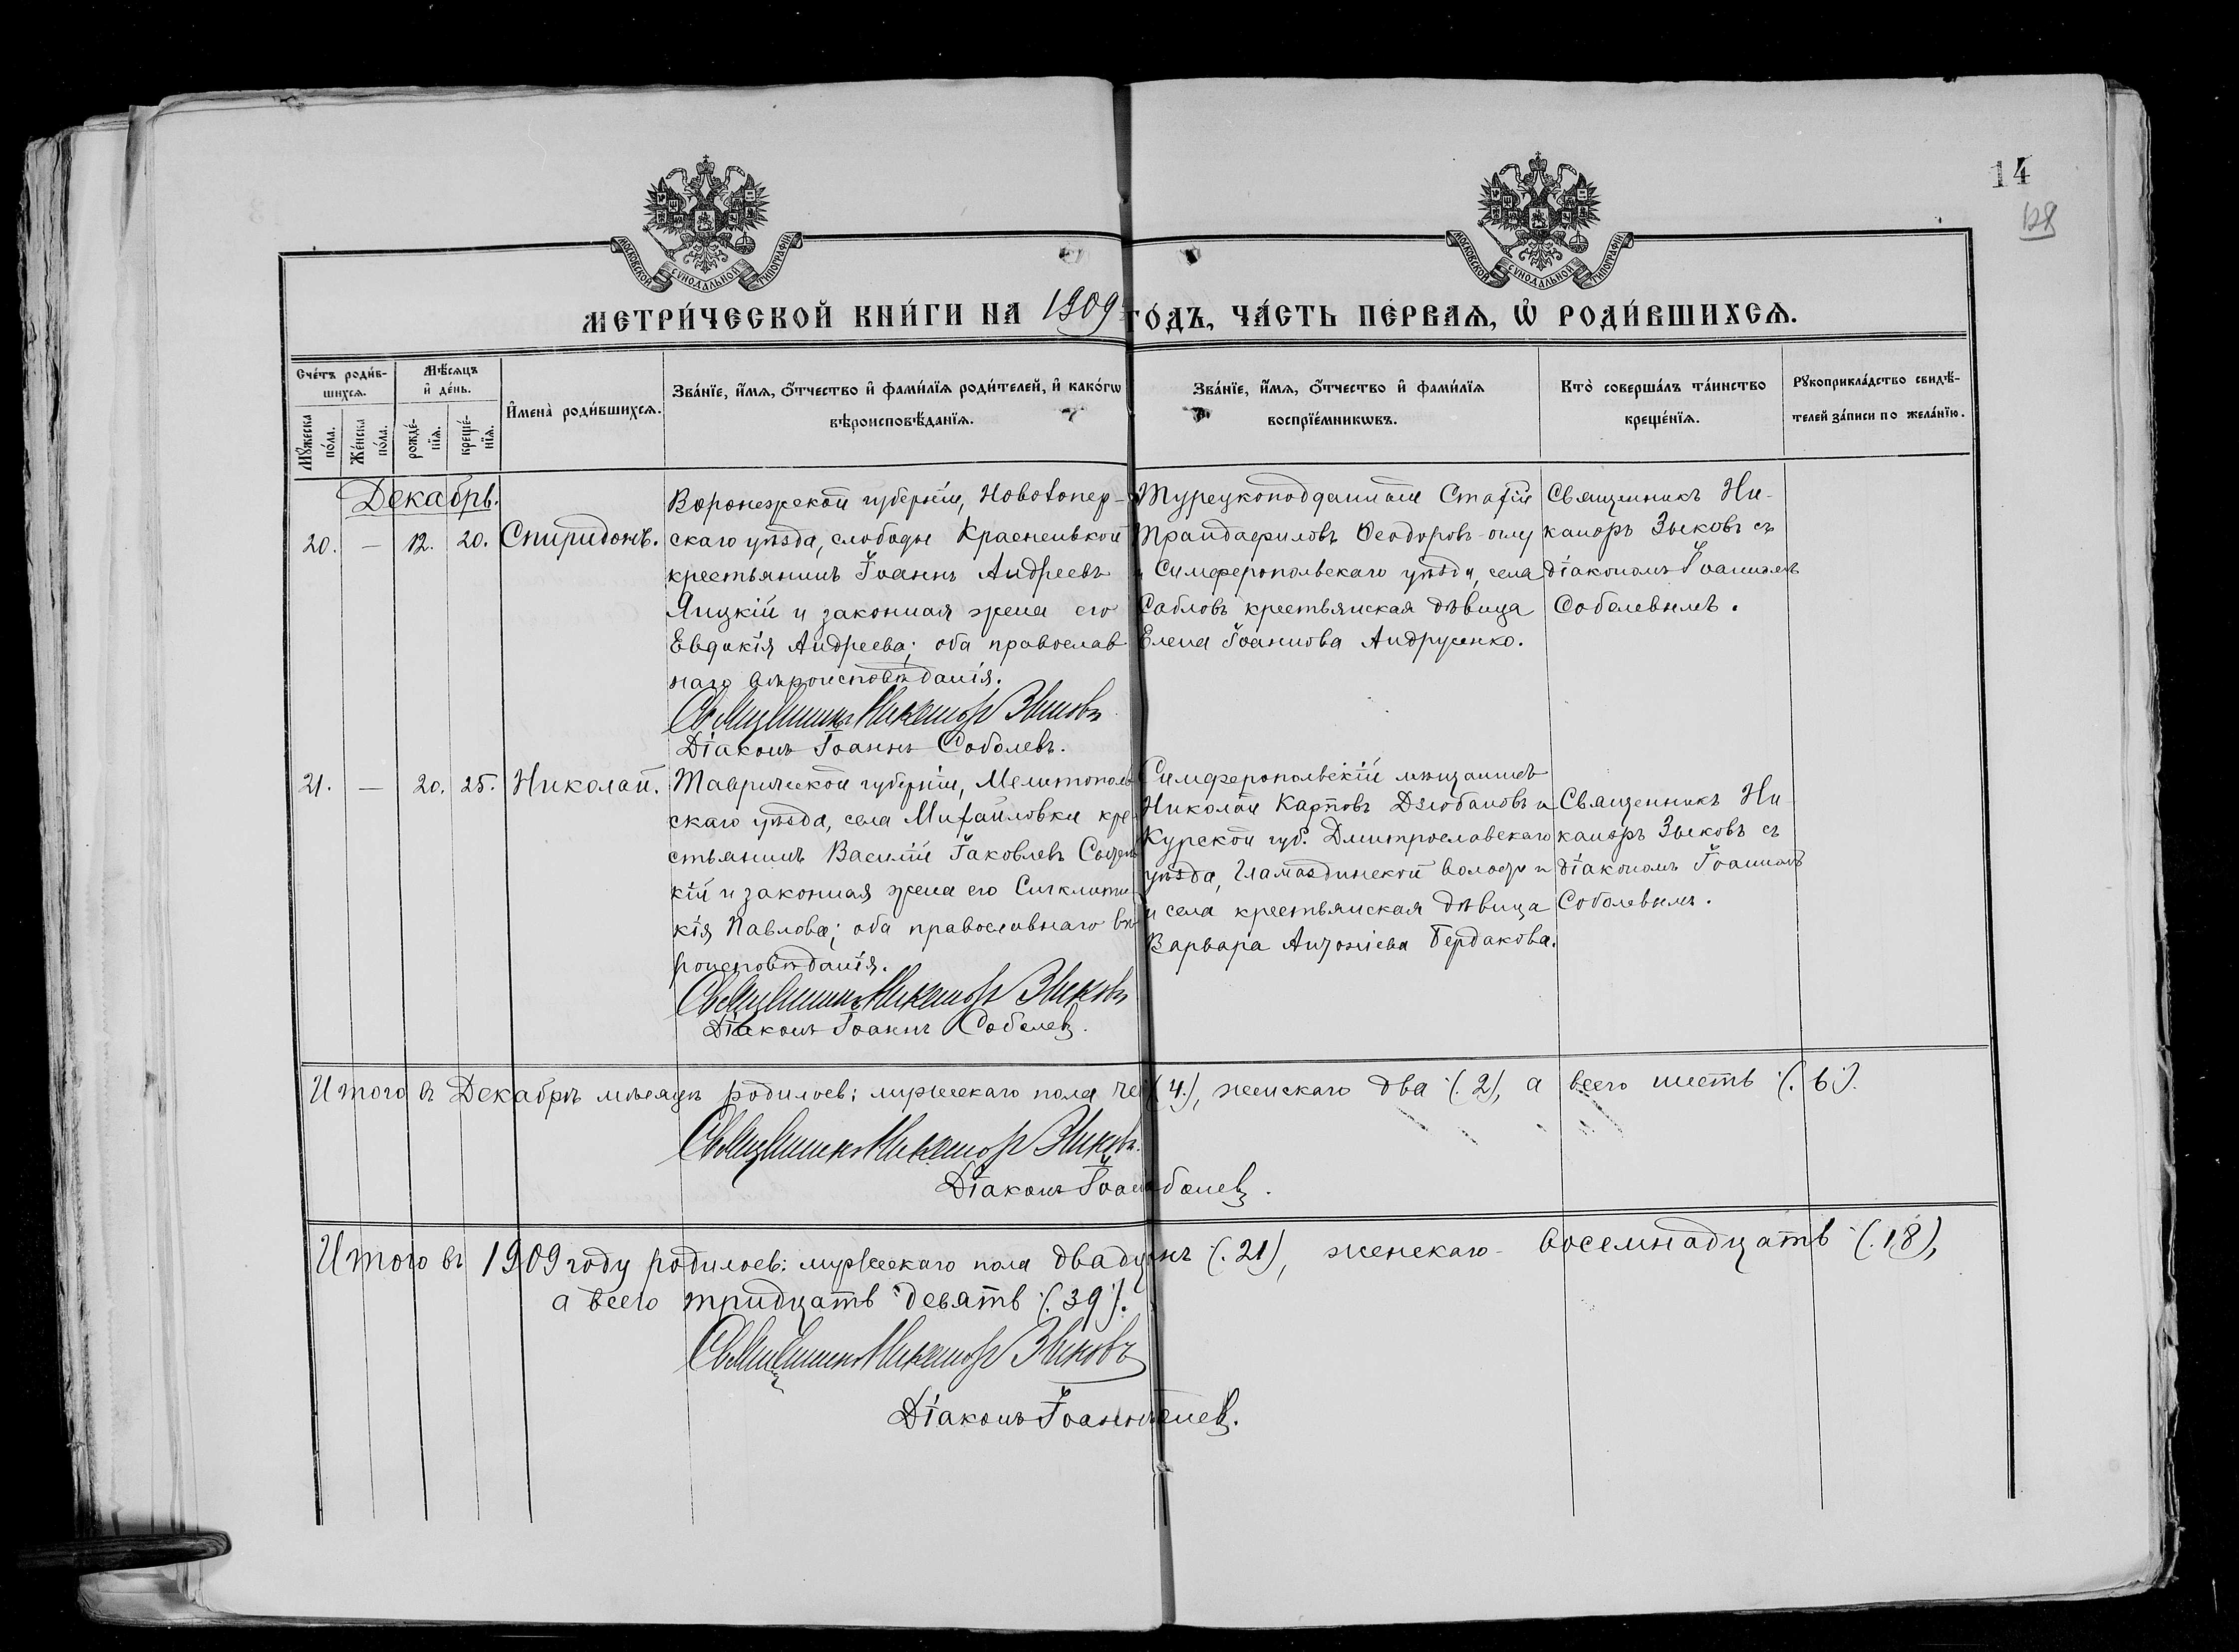 14
128
МОСКОВСКОЙ СУНОДАЛЬНОЙ ТИПОГРАФІИ
МОСКОВСКОЙ СУНОДАЛЬНОЙ ТИПОГРАФІИ
МЕТРИ́ЧЕСКОЙ КНИ́ГИ НА 1909 ГО́ДЪ, ЧА́СТЬ ПЕ́РВАѦ, Ѡ҆ РОДИ́ВШИХСѦ.
Сче́тъ роди́в-
шихсѧ.
Мꙋ́жеска по́ла.
Же́нска по́ла.
Мѣ́сѧцъ
и҆ де́нь.
рожде́-
нїѧ.
креще́-
нїѧ.
И҆мена̀ роди́вшихсѧ.
Зва́нїе, и҆́мѧ, ѻ҆́тчество и҆ фами́лїѧ роди́телей, и҆ како́гѡ
вѣроисповѣ́данїѧ.
Зва́нїе, и҆́мѧ, ѻ҆́тчество и҆ фами́лїѧ
воспрїе́мникѡвъ.
Кто̀ соверша́лъ та́инство
креще́нїѧ.
Рꙋкоприкла́дство свидѣ́-
телей за́писи по жела́нїю.
Декабрь.
20. — 12. 20. Спиридонъ.
Воронежской губерніи, Новохопер-
скаго уѣзда, слободы Красненькой
крестьянинъ Іоаннъ Андреевъ
Яицкій и законная жена его
Евдокія Андреева; оба православ
наго вѣроисповѣданія.
Священникъ Никаноръ Зыковъ
Діаконъ Іоаннъ Соболевъ.
Турецкоподданный Стафій
Трандафиловъ Ѳеодоровъ-оглу
и Симферопольскаго уѣзда, села
Сабловъ крестьянская дѣвица
Елена Іоаннова Андрусенко.
Священникъ Ни-
каноръ Зыковъ съ
діакономъ Іоанномъ
Соболевымъ.
21. — 20. 25. Николай.
Таврической губерніи, Мелитополь
скаго уѣзда, села Михайловки кре-
стьянинъ Василій Іаковлевъ
кій и законная жена его Синклити-
кія Павлова; оба православнаго вѣ-
роисповѣданія.
Священникъ Никаноръ Зыковъ
Діаконъ Іоаннъ Соболевъ.
Симферопольскій мѣщанинъ
Николай Карповъ Дзюбановъ и
Курской губ. Дмитрославскаго
уѣзда, Гламаздинской волости
и села крестьянская дѣвица
Варвара Антоніева Бердакова.
Священникъ Ни-
каноръ Зыковъ съ
діакономъ Іоанномъ
Соболевымъ.
Итого въ Декабрѣ мѣсяцѣ родилось: мужескаго пола че (4.), женскаго два (.2), а всего шесть (.6.).
Священникъ Никаноръ Зыковъ.
Діаконъ Іоан болевъ.
Итого въ 1909 году родилось: мужескаго пола двадц нъ (.21), женскаго - восемнадцать (.18),
а всего тридцать девять (.39.).
Священникъ Никаноръ Зыковъ
Діаконъ Іоаннъ олевъ.